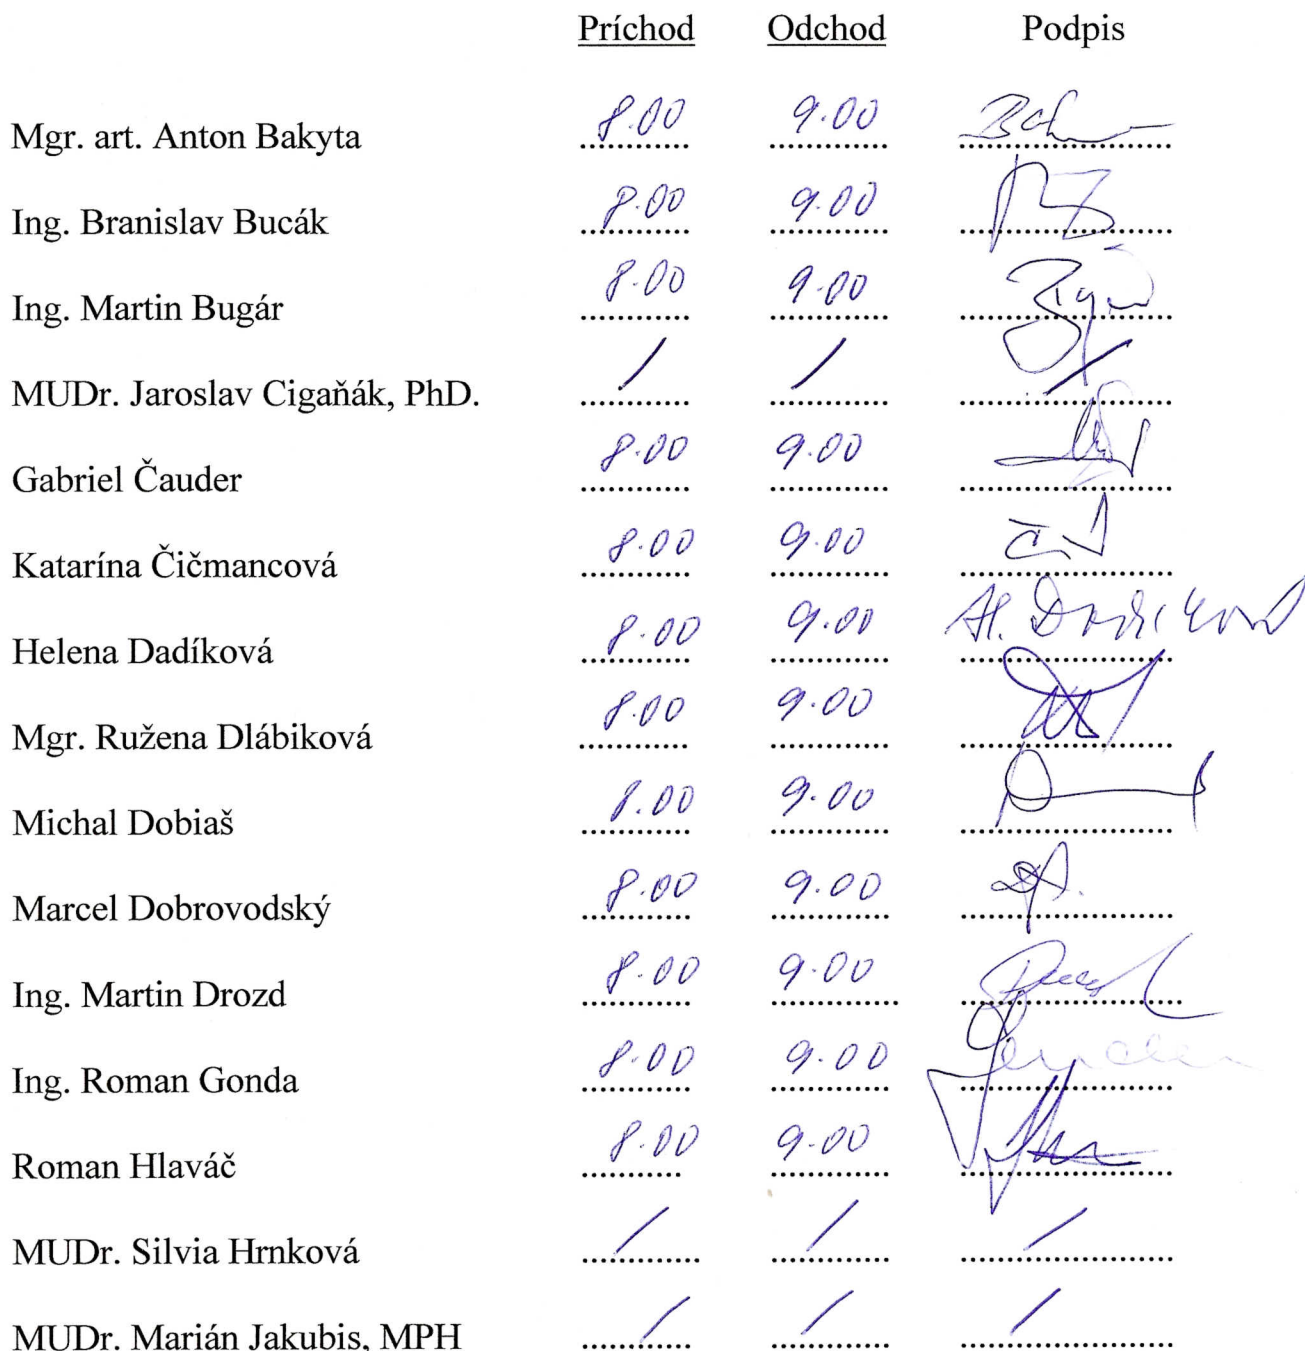 Príchod Odchod Podpis
Mgr. art. Anton Bakyta 8.00 9.00
Ing. Branislav Bucák 8.00 9.00
Ing. Martin Bugár 8.00 9.00
MUDr. Jaroslav Cigaňák, PhD. / / /
Gabriel Čauder 8.00 9.00
Katarína Čičmancová 8.00 9.00
Helena Dadíková 8.00 9.00 H. Dadíková
Mgr. Ružena Dlábiková 8.00 9.00
Michal Dobiaš 8.00 9.00
Marcel Dobrovodský 8.00 9.00
Ing. Martin Drozd 8.00 9.00
Ing. Roman Gonda 8.00 9.00
Roman Hlaváč 8.00 9.00
MUDr. Silvia Hrnková / / /
MUDr. Marián Jakubis, MPH / / /